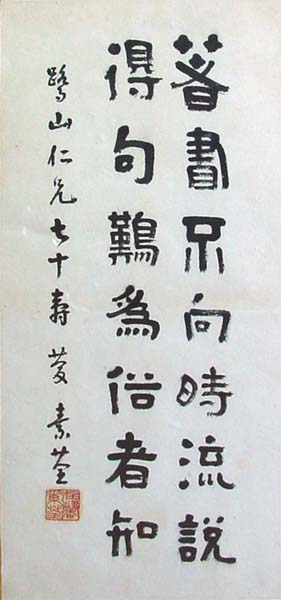 著書不向時流說
得句難為俗者知
鷺山仁兄七十壽 素荃